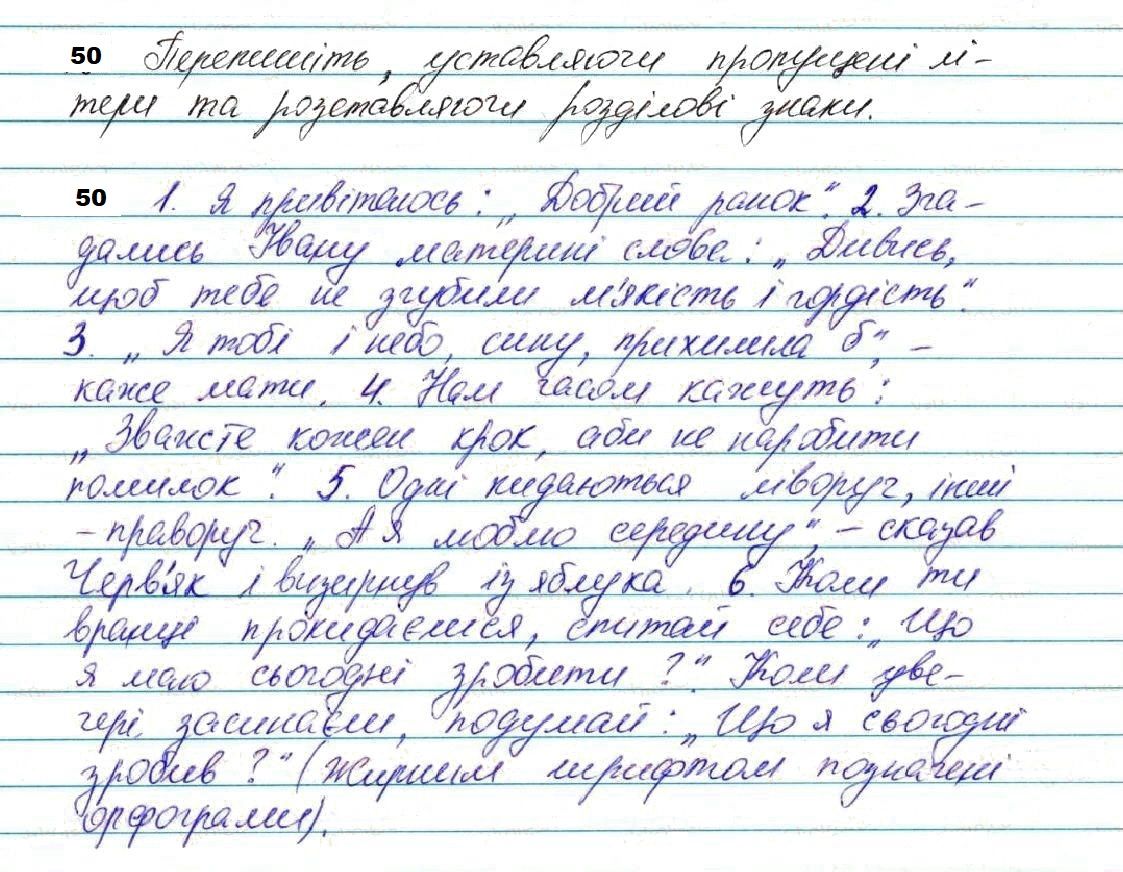 50 Перепишіть, уставляючи пропущені лі-
тери та розставляючи розділові знаки.
50 1. Я привіталась: „Добрий ранок". 2. Зга-
дались Івану материні слова: „Дивись,
щоб тебе не згубили м'якість і гордість".
3. „Я тобі і небо, сину, прихилила б", –
каже мати. 4. Нам часом кажуть:
„Зважте кожен крок, аби не наробити
помилок". 5. Одні кидаються ліворуч, інші
– праворуч. „А я люблю середину", – сказав
Черв'як і визирнув із яблука. 6. Коли ти
вранці прокидаєшся, спитай себе: „Що
я маю сьогодні зробити?". Коли уве-
чері засинаєш, подумай: „Що я сьогодні
зробив?" (Жирним шрифтом позначені
орфограми).